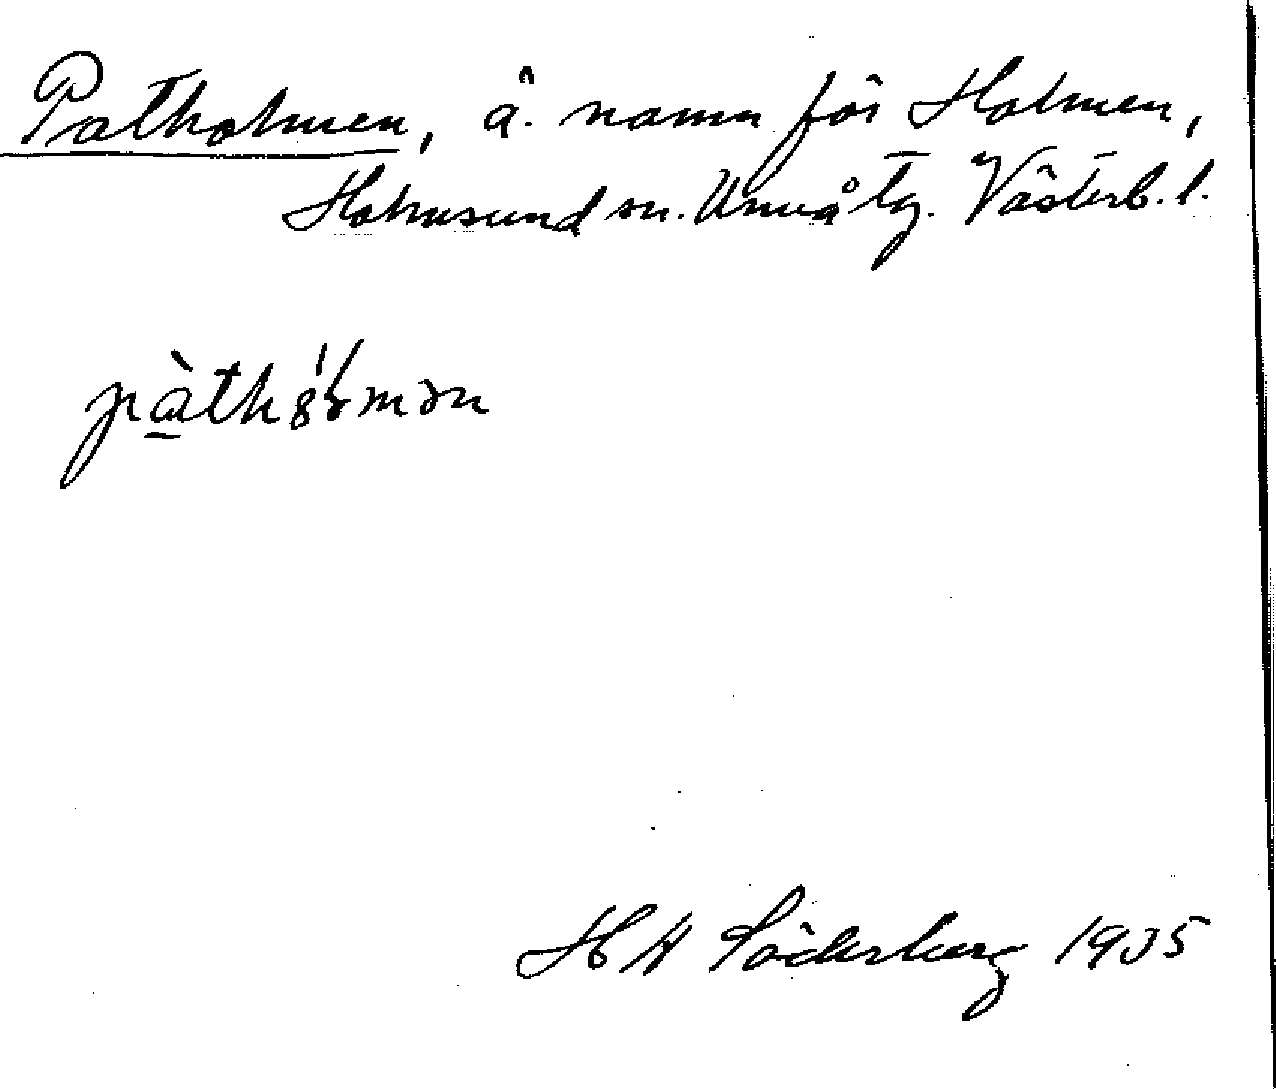 Patholmen, ä. namn för Holmen,
Holmsund sn. Umeå tg. Västerb. l.
pàthólmən
H W Söderberg 1935